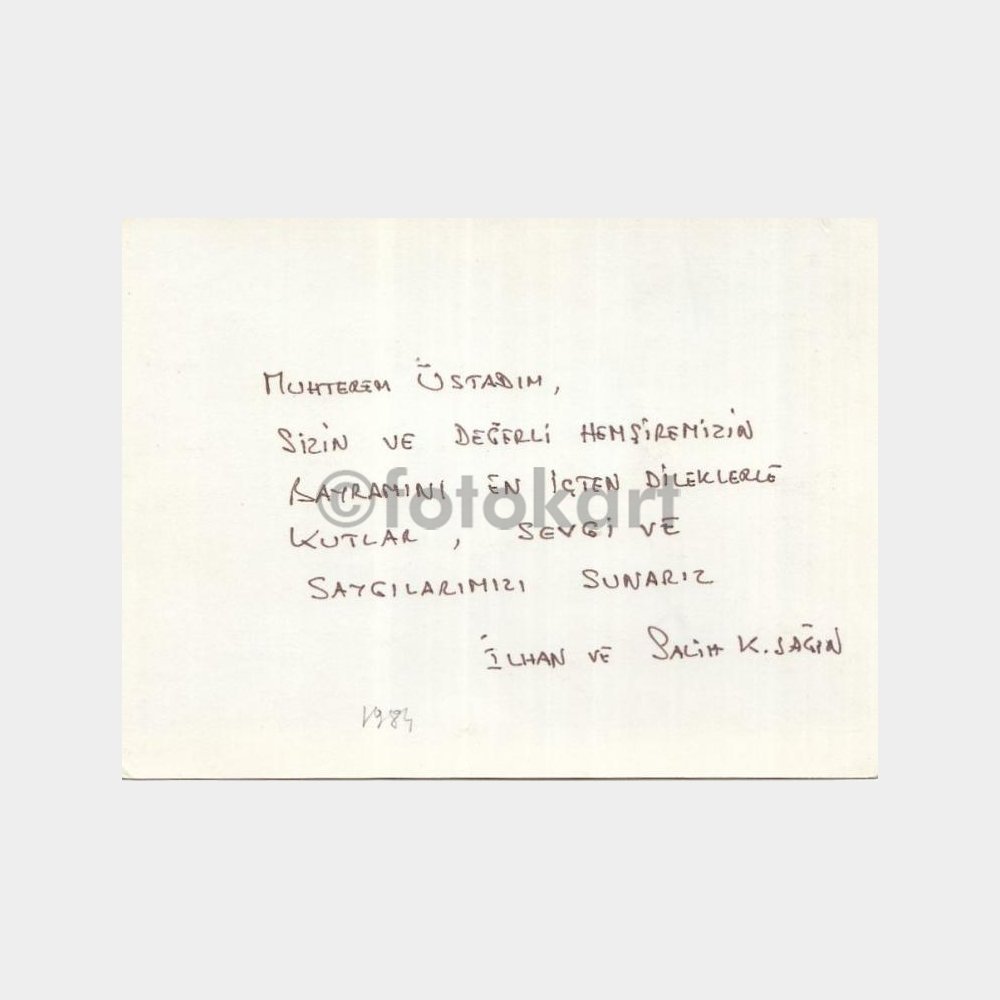 MUHTEREM ÜSTADIM,
SİZİN VE DEĞERLİ HEMŞİREMİZİN
BAYRAMINI EN İÇTEN DİLEKLERLE
©fotokart
KUTLAR, SEVGİ VE
SAYGILARIMIZI SUNARIZ
İLHAN VE SALİH K. SAĞIN
1984